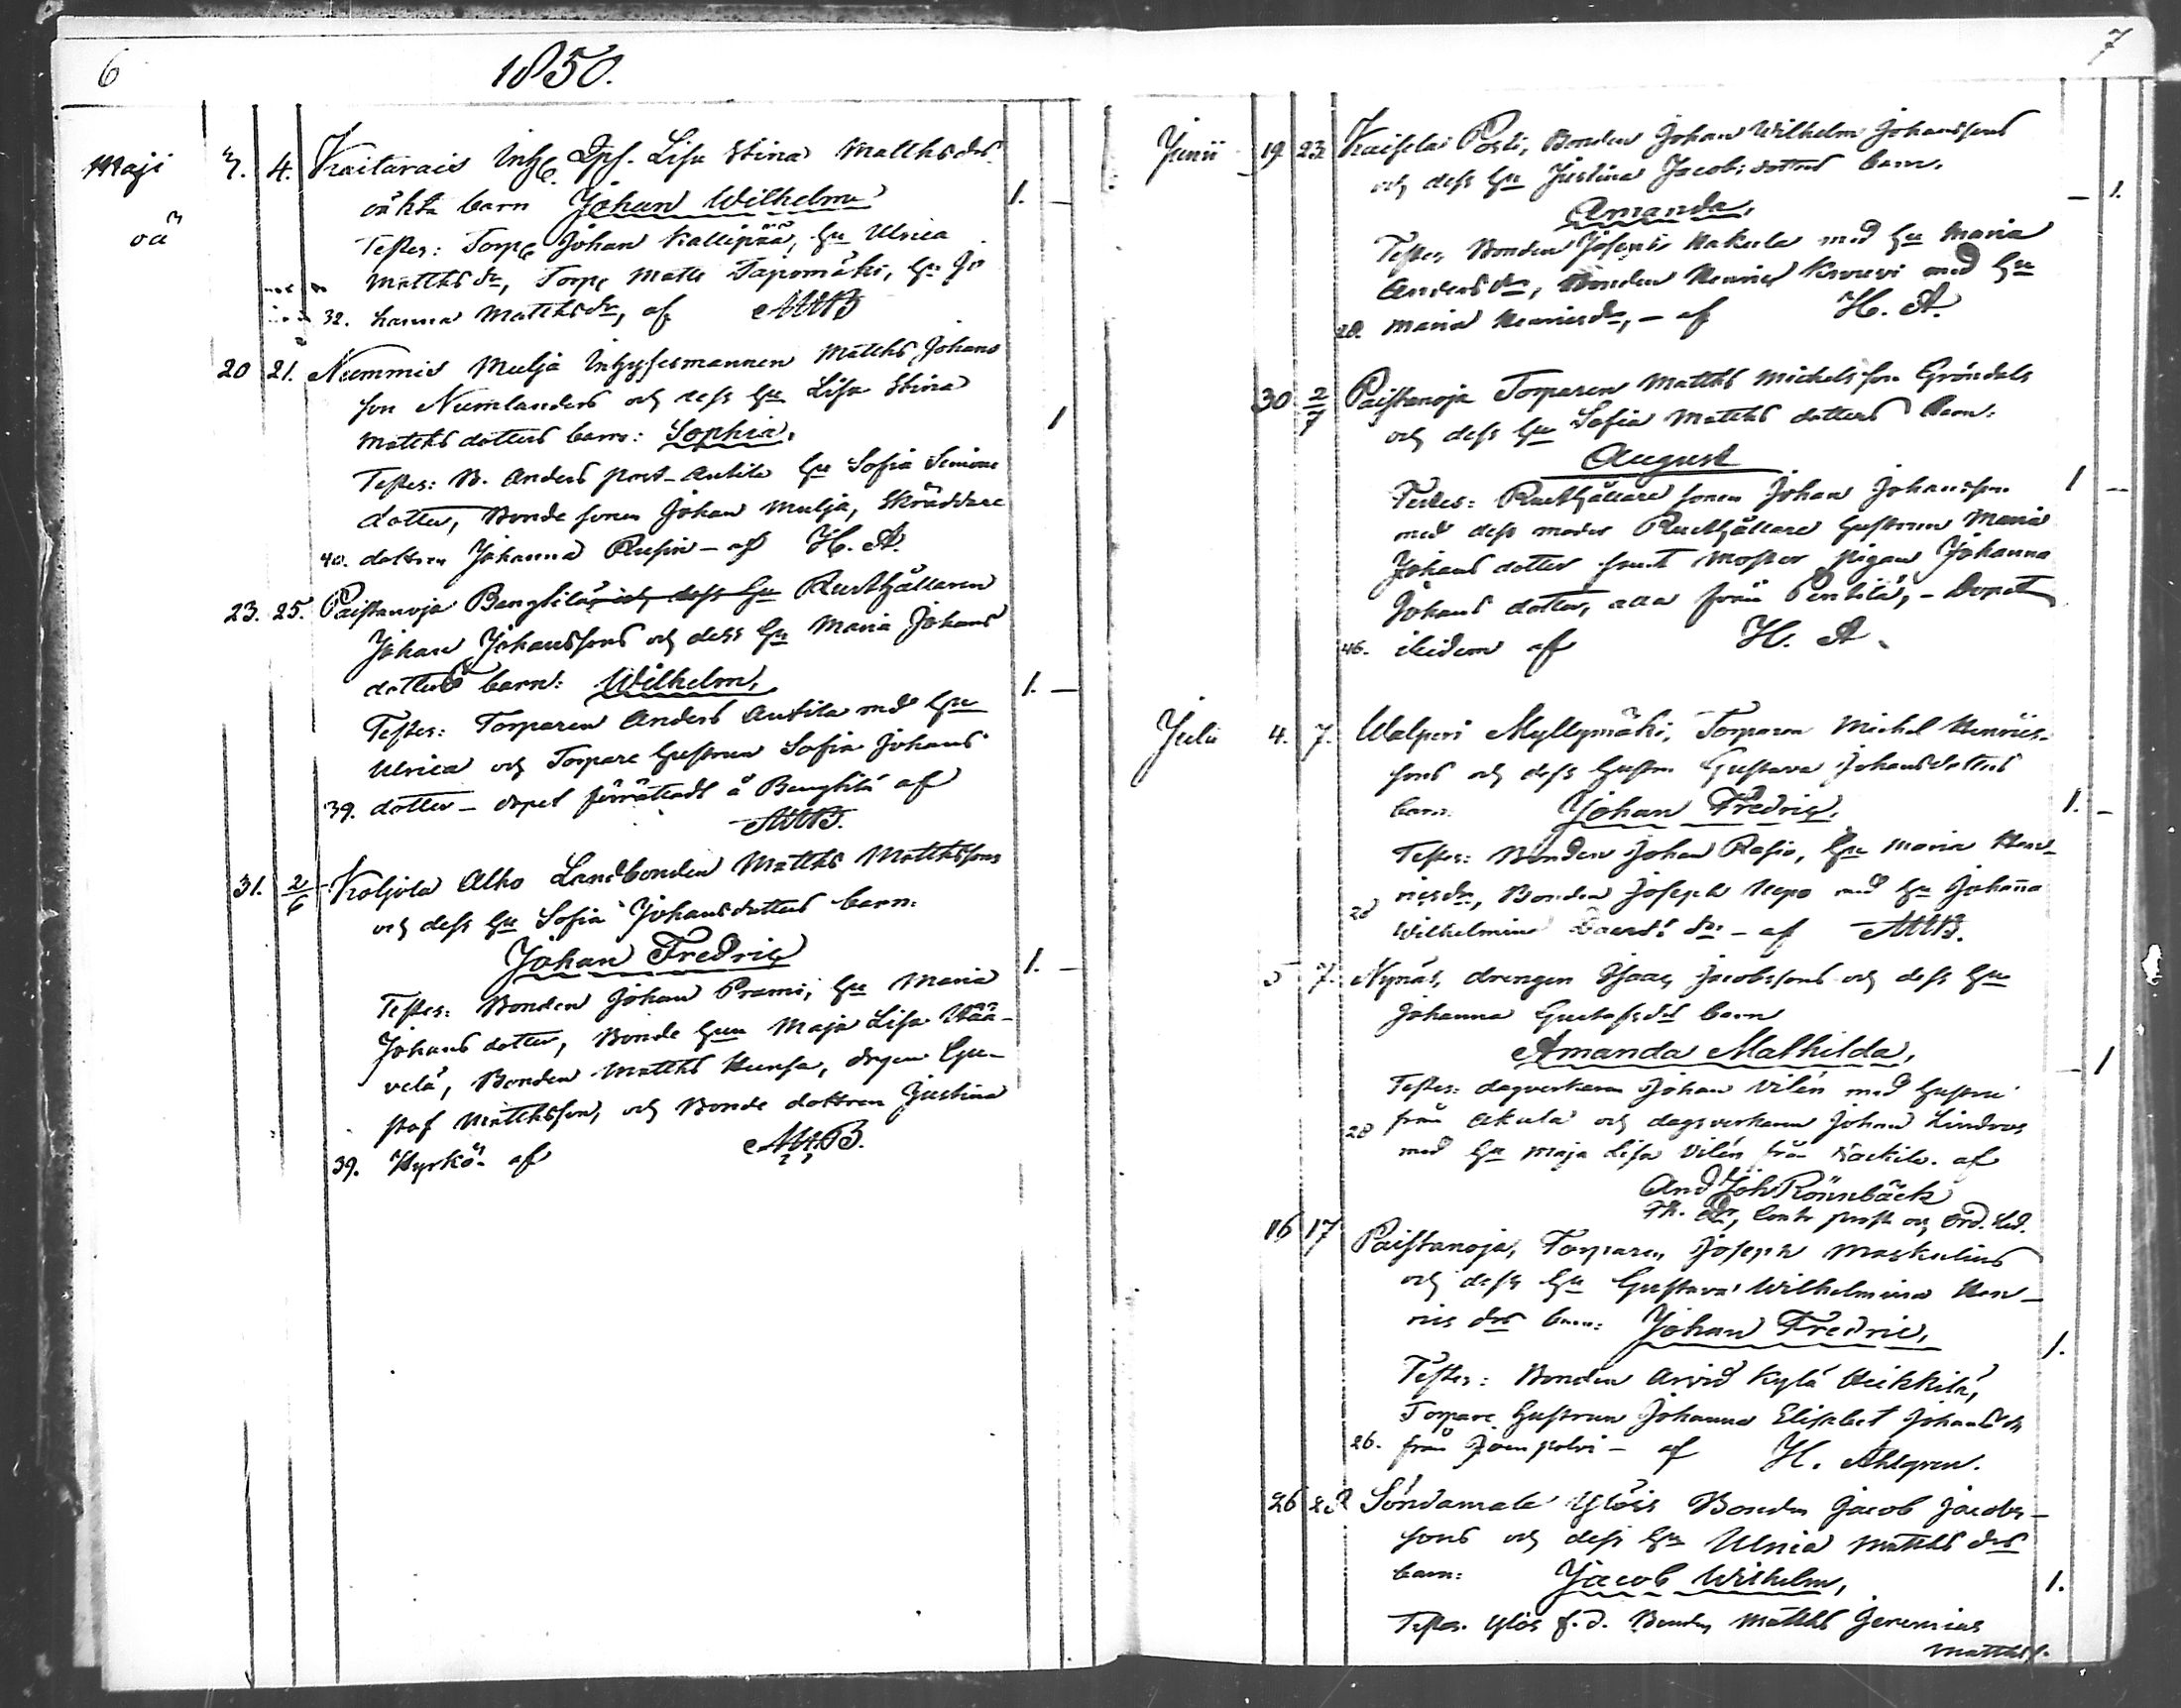 6
1850.
Maji 3. 4. Kaitarais Inh. Qps. Lisa Stina Matthsdrs
oä oäkta barn Johan Wilhelm 1. —
Testes: Torp. Johan Kallipää, Hu Ulrica
Mattsdr, Torp. Matts Tapomäki, Hu Jo
32. hanna Matthsdr, af
20 21. Nummis Mulja Inhysesmannen Matths Johans
son Numlanders och dess Hu Lisa Stina
Matths dotters barn: Sophia. 1
Testes: B. Anders Post-Antila Hu Sofia Simons
dotter, Bonde sonen Johan Mulja, Skräddare
40. dottren Johanna Rusin — af H. A.
23. 25. Paistanoja Bengtilä, och dess Hu Rusthållaren
Johan Johanssons och dess Hu Maria Johans
dotters barn: Wilhelm, 1. —
Testes: Torparen Anders Antila med Hu
Ulrica och Torpare Hustrun Sofia Johans
39. dotter — dopet förrättadt å Bengtilä af
31. 2/6 Koljola Alho Landbonden Matths Matthssons
och dess Hu Sofia Johansdotters barn:
Johan Fredric 1. —
Testes: Bonden Johan Prami, Hu Maria
Johans dotter, Bonde Hun Maja Lisa Wää-
velä, Bonden Matths Hunsa, drgen Gu-
staf Matthsson, och Bonde dottren Justina
39. Kyrkö. af
7
Junii 19. 23. Kaisela Posti, Bonden Johan Wilhelm Johanssons
och dess Hu Justina Jacobsdotters barn.
Amanda, — 1.
Testes, Bonden Josephs Hakula med Hu Maria
Andersdr, Bonden Henric Knuuvi med Hu
28. Maria Henricsdr, — af H. A.
30. 2/7 Paistanoja Torparen Matths Michelsson Gröndals
och dess Hu Sofia Matths dotters barn:
August 1 —
Testes: Rusthållare sonen Johan Johansson
med dess moder Rusthållare Hustrun Maria
Johans dotter samt moster pigan Johanna
Johans dotter, alla från Penttilä, — Dopet
46. ibidem af H. A.
Julii 4. 7. Walperi Myllymäki, Torparen Michel Henrics-
sons och dess Hustru Gustava Johansdotters
barn: Johan Fredric, 1. —
Testes: Bonden Johan Rasia, Hu Maria Hen-
28 ricsdr, Bonden Joseph Uepo med Hu Johanna
Wilhelmina dr — af
5 7. Nynäs, drengen Isaac Jacobssons och dess Hu
Johanna Gustafsdrs barn
Amanda Mathilda, — 1
Testes: dagsverkaren Johan Vilén med Hustru
28 från Akula och dagsverkaren Johan Lindroos
med Hu Maja Lisa Vilén från af
And Joh Rönnbäck
16 17 Paistanoja, Torparen Joseph Maskulins
och dess Hu Gustava Wilhelmina Hen-
rics drs barn: Johan Fredric, 1.
Testes: Bonden Arvid Kylä Heikkilä,
Torpare Hustrun Johanna Elisabet Johansdr
26. från Joenpolvi — af H. Ahlgren.
26 28 Söndamala Ylöis Bonden Jacob Jacobs-
sons och dess Hu Ulrica Matths drs
barn: Jacob Wilhelm, 1.
Testes. Ylös f.d. Bonden Matths Jeremias
Matths.